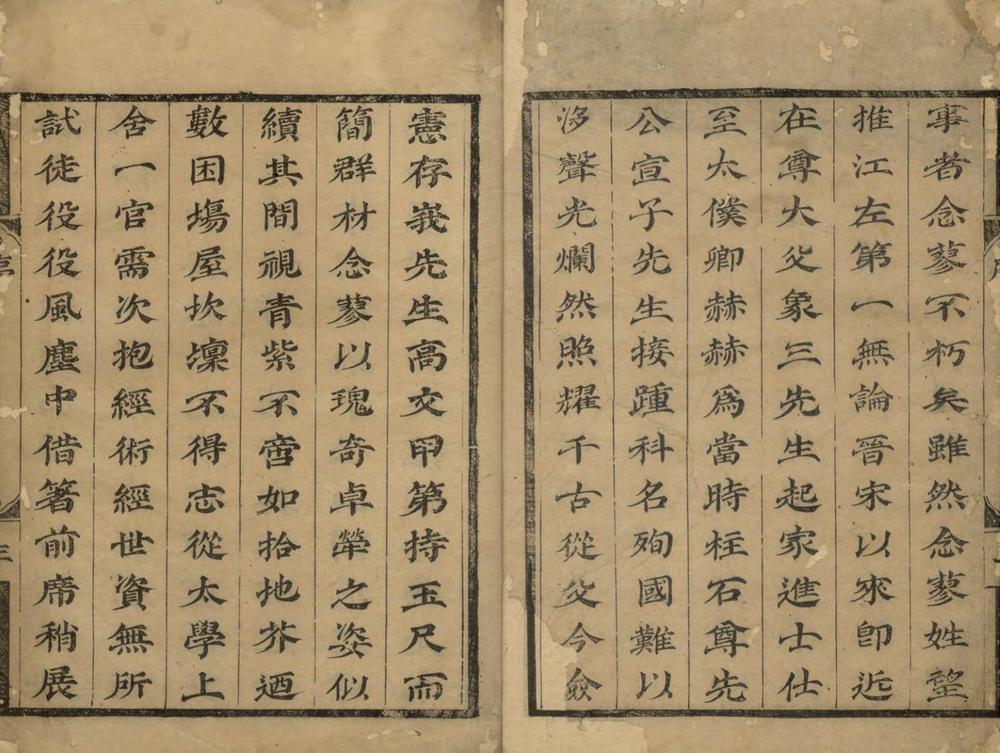 事者念蓼不朽矣雖然念蓼姓望
推江左第一無論晉宋以來卽近
在尊大父象三先生起家進士仕
至太僕卿赫赫爲當時柱石尊先
公宣子先生接踵科名殉國難以
沙聲光爛然照耀千古從父今僉
憲存峩先生高文甲第持玉尺而
簡群材念蓼以瑰奇卓犖之姿似
續其間視青紫不啻如拾地芥迺
數困塲屋坎壈不得志從太學上
舍一官需次抱經術經世資無所
試徒役役風塵中借箸前席稍展
三